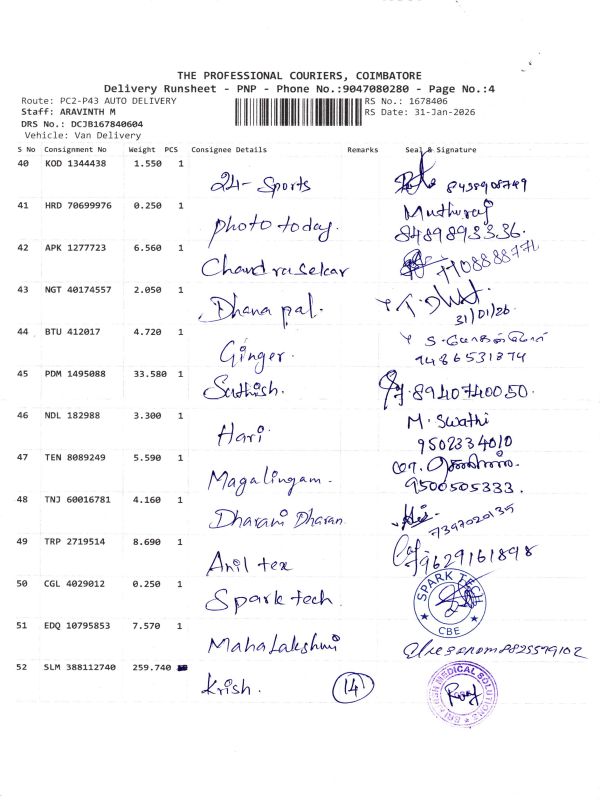 THE PROFESSIONAL COURIERS, COIMBATORE
Delivery Runsheet - PNP - Phone No.:9047080280 - Page No.:4
Route: PC2-P43 AUTO DELIVERY
RS No.: 1678406
Staff: ARAVINTH M
RS Date: 31-Jan-2026
DRS No.: DCJB167840604
Vehicle: Van Delivery
S No Consignment No Weight PCS Consignee Details Remarks Seal & Signature
40 KOD 1344438 1.550 1
24-Sports 8438908749
41 HRD 70699976 0.250 1
Muthuraj
photo today. 8489893336.
42 APK 1277723 6.560 1
Chandrasekar
43 NGT 40174557 2.050 1
Dhanapal.
31/01/26
44 BTU 412017 4.720 1
Ginger. 9486531874
45 PDM 1495088 33.580 1
Sathish. 8940740050.
46 NDL 182988 3.300 1
M. Swathi
Hari 9502334010
47 TEN 8089249 5.590 1
Magalingam. 9500505333.
48 TNJ 60016781 4.160 1
Dharani Dharan 7397020135
49 TRP 2719514 8.690 1
Anil tex 9629161898
50 CGL 4029012 0.250 1
Spark tech. SPARK TECH CBE
51 EDQ 10795853 7.570 1
MahaLakshmi
52 SLM 388112740 259.740
Krish. 14 MEDICAL SOLUTIONS